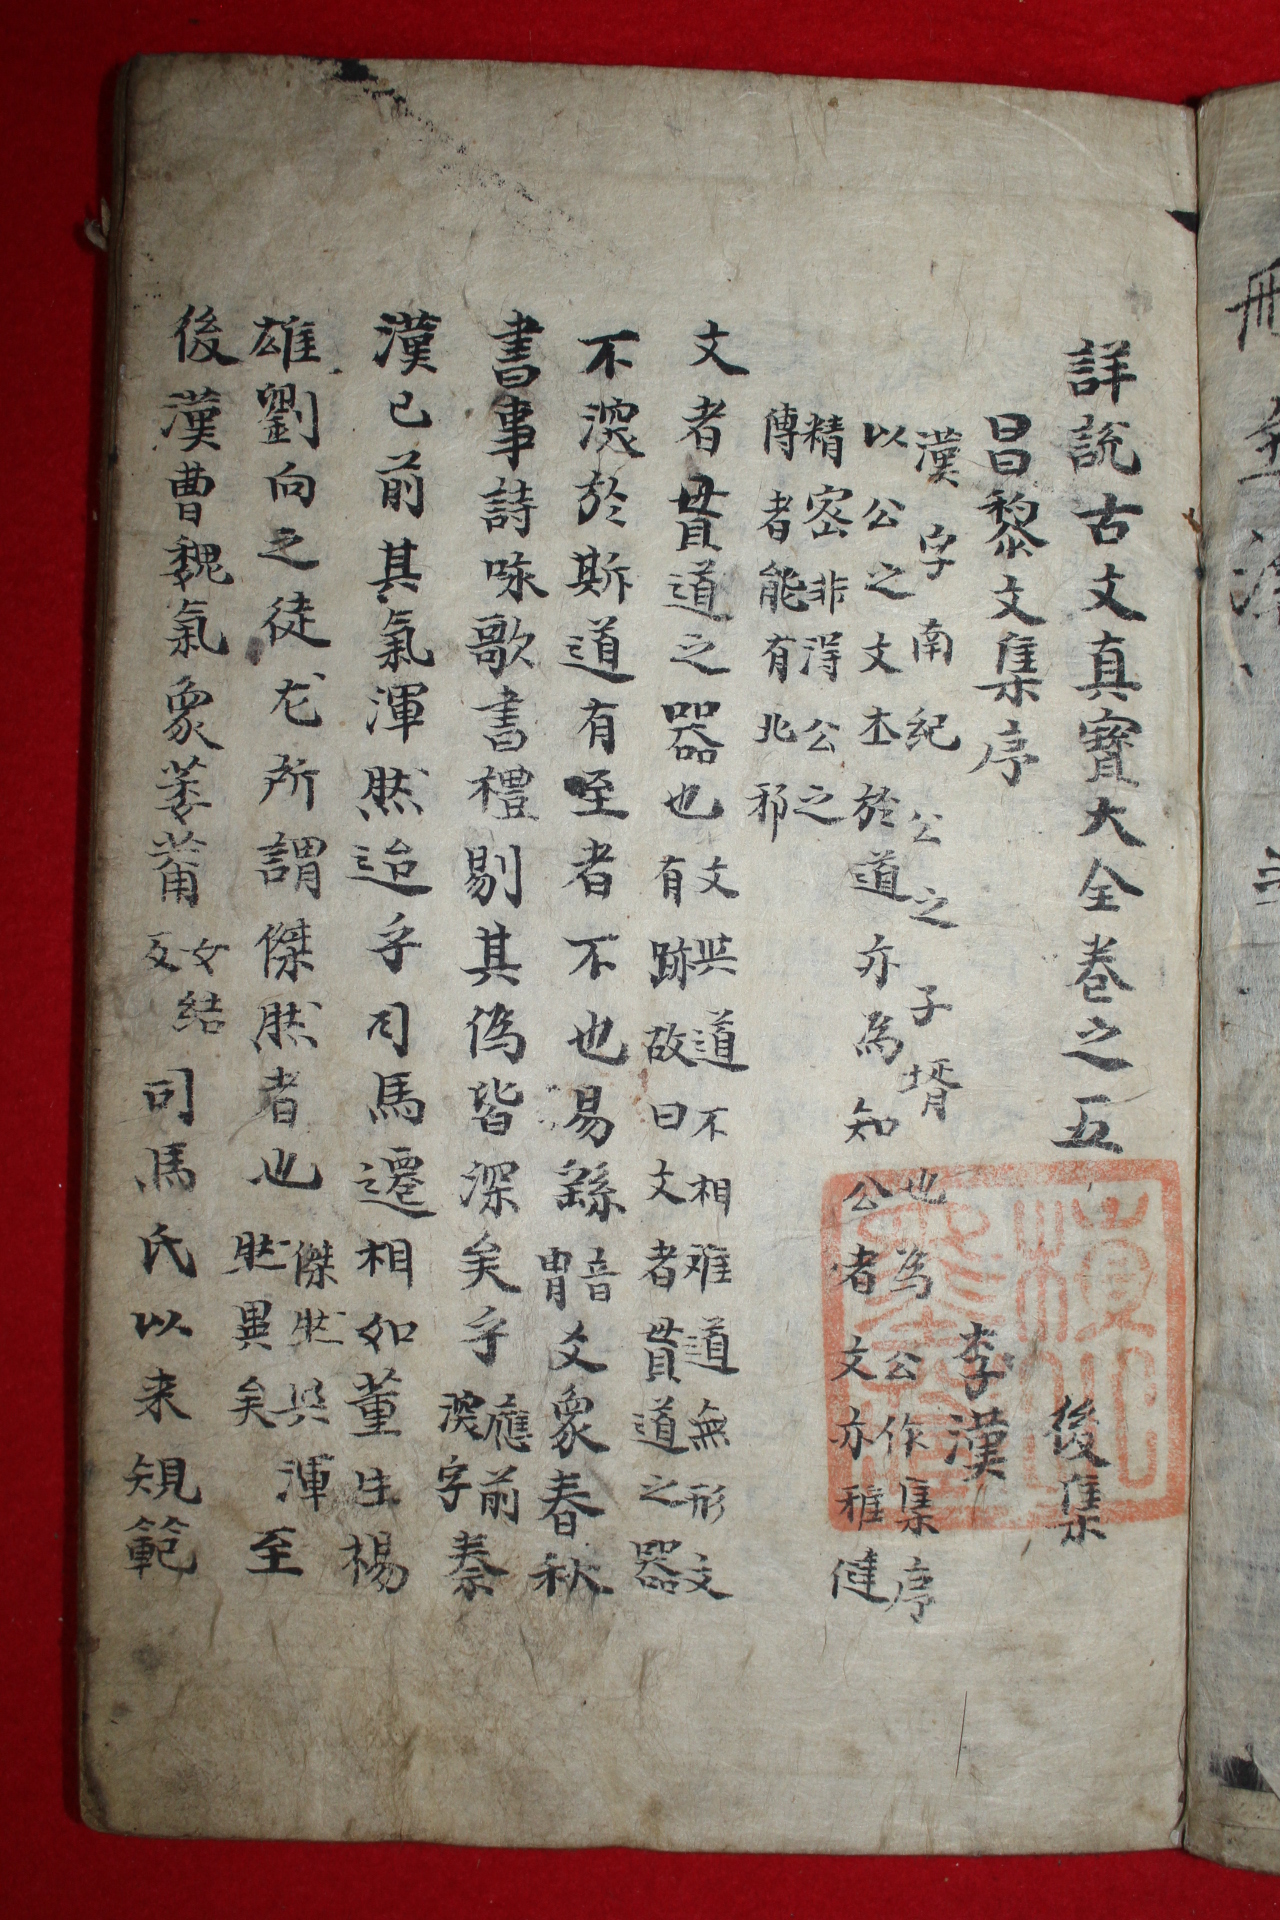 詳說古文真寶大全卷之五 後集
昌黎文集序 李漢
漢字南紀公之子壻也為公作集序
以公之文本於道亦為知公者文亦稚健
精密非得公之
傳者能有北邪
文者貫道之器也文與道不相难道無形文
有跡故曰文者貫道之器
不深於斯道有至者不也易繇音
胄爻象春秋
書事詩咏歌書禮剔其偽皆深矣乎應前
深字秦
漢已前其氣渾然迨乎司馬遷相如董生楊
雄劉向之徒尤所謂傑然者也傑然與渾
然異矣至
後漢曹魏氣象萎薾女結
反司馬氏以来規範